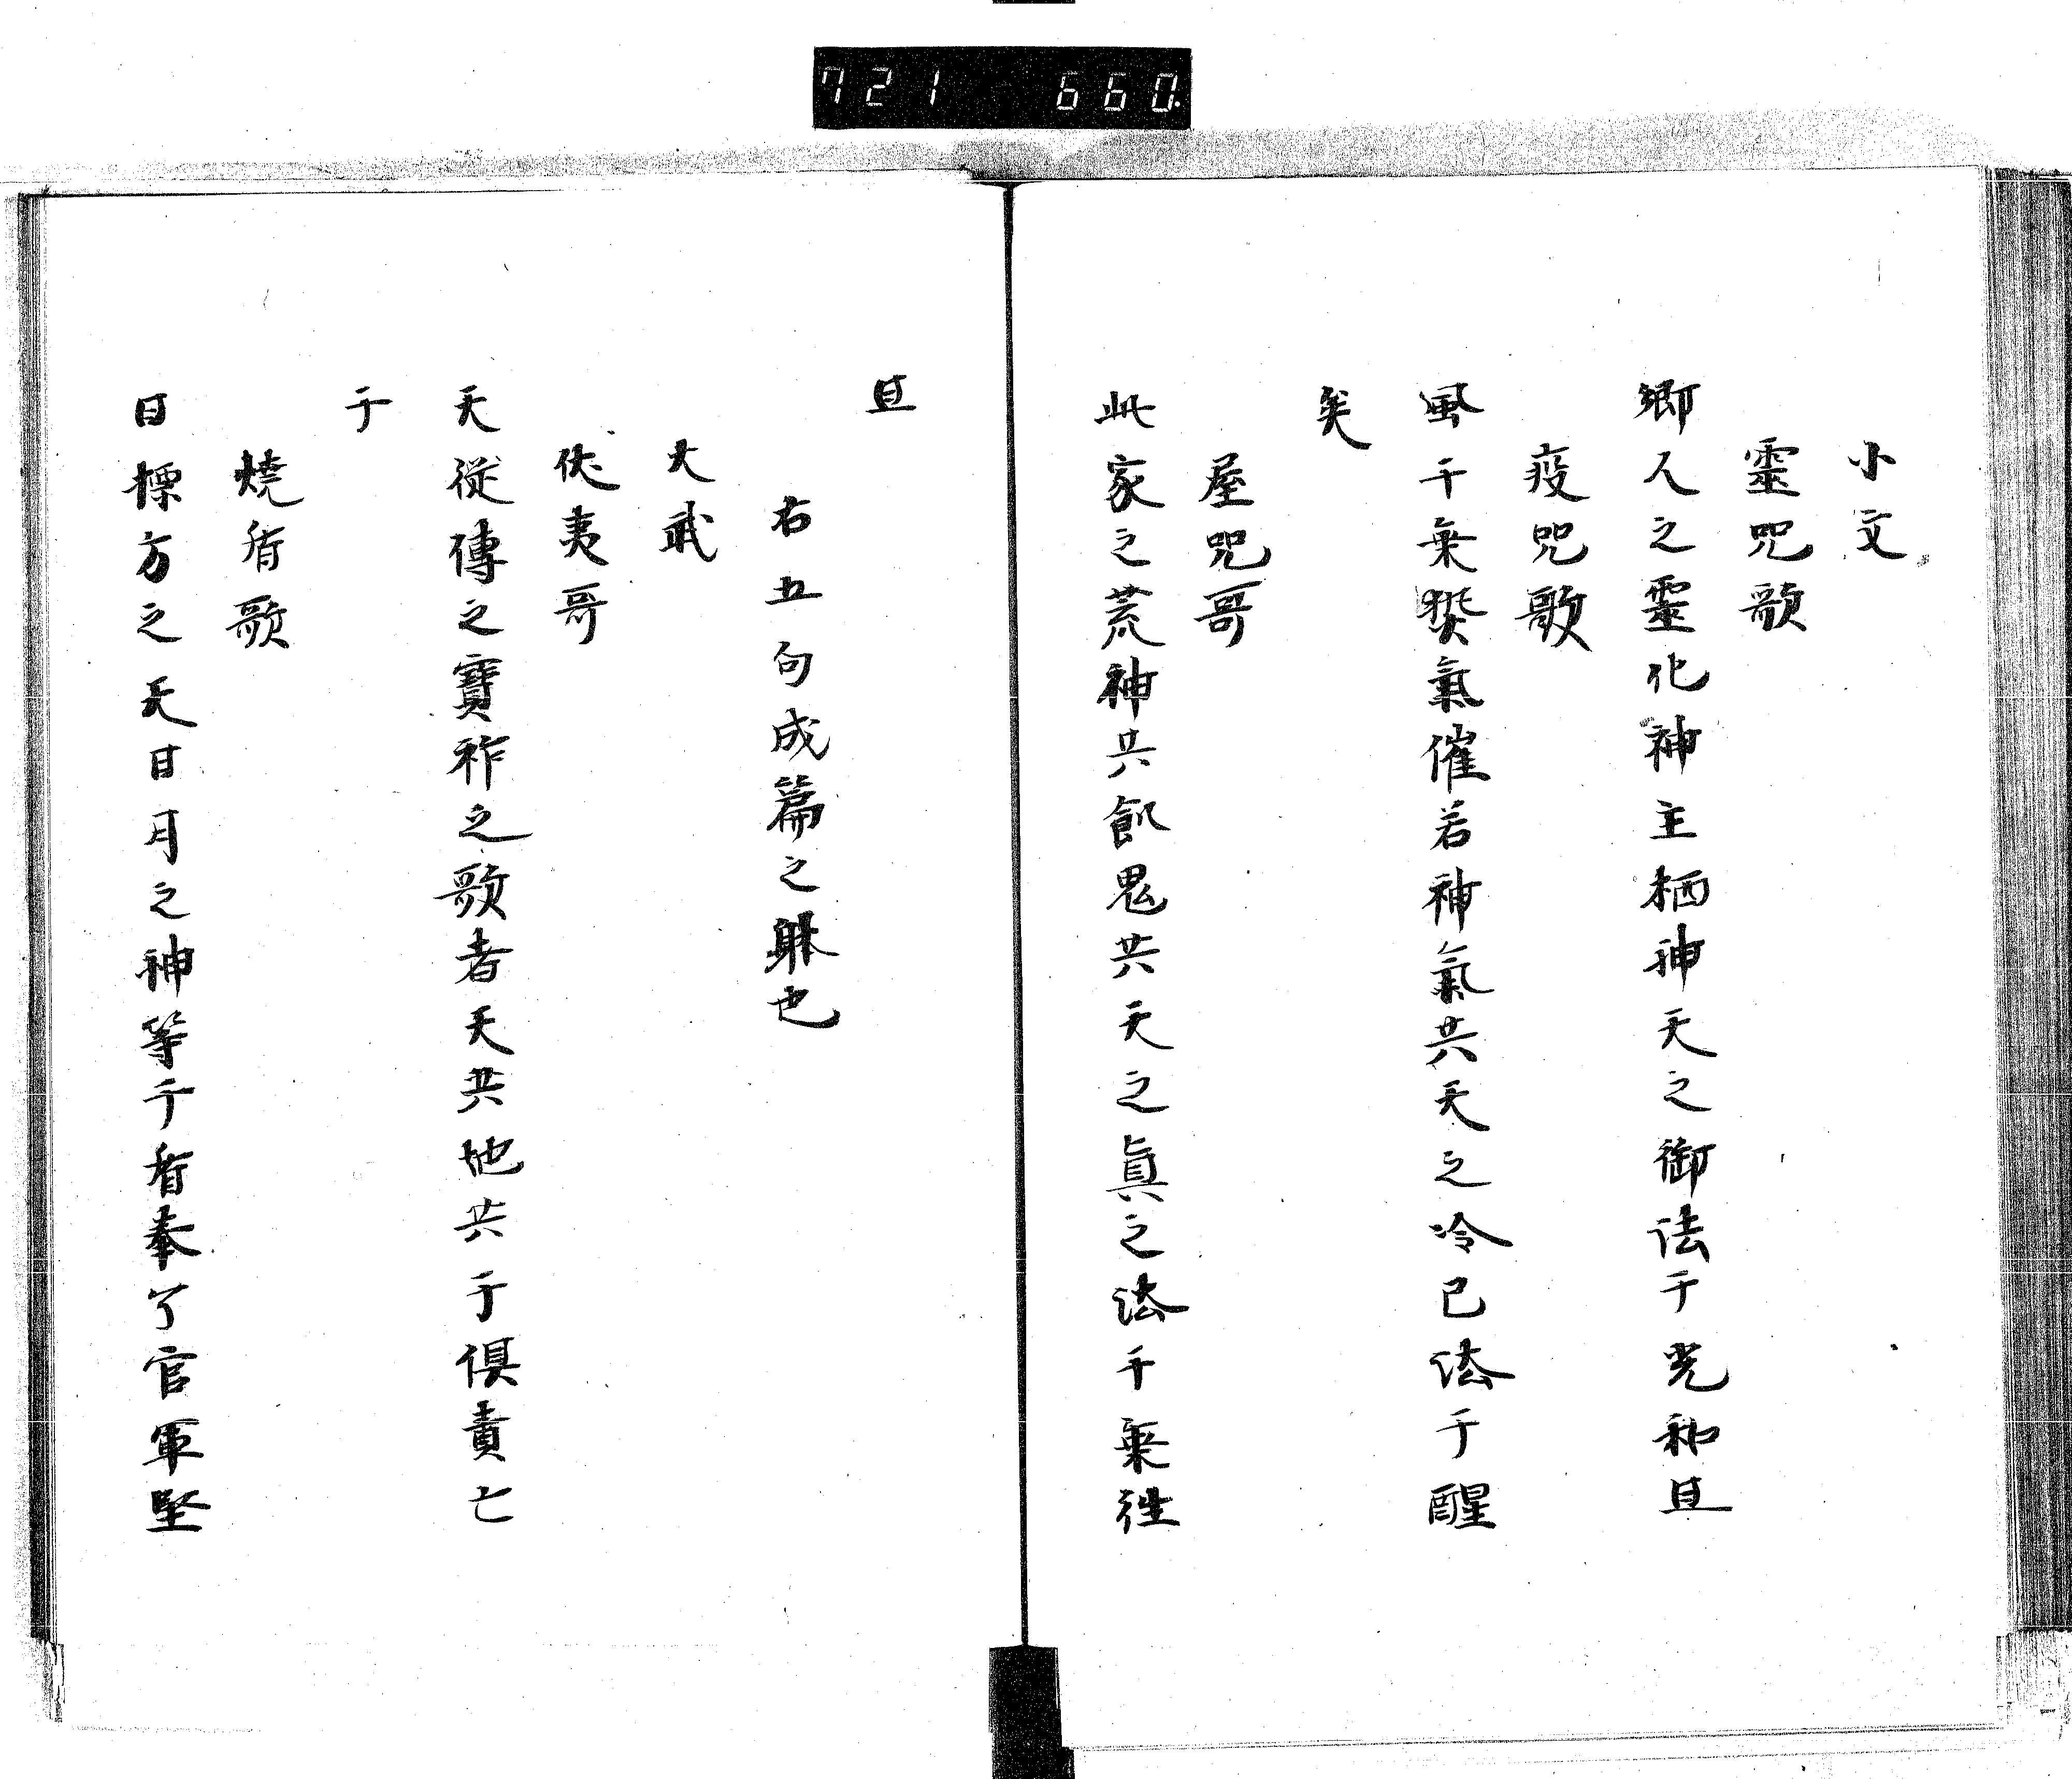 721 660.
小文
靈咒歌
郷人之靈化神主栖神天之御法于光和且
疫咒歌
風千乗獘氣催若神氣共天之冷已法于醒
矣
屋咒哥
此家之荒神共飢鬼共天之眞之法千乗徃
且
右五句成篇之躰也
大武
伏夷哥
天從傳之寶祚之歌者天共地共于倶責亡
于
燒香歌
日摽方之天日月之神等千香奉了官軍堅